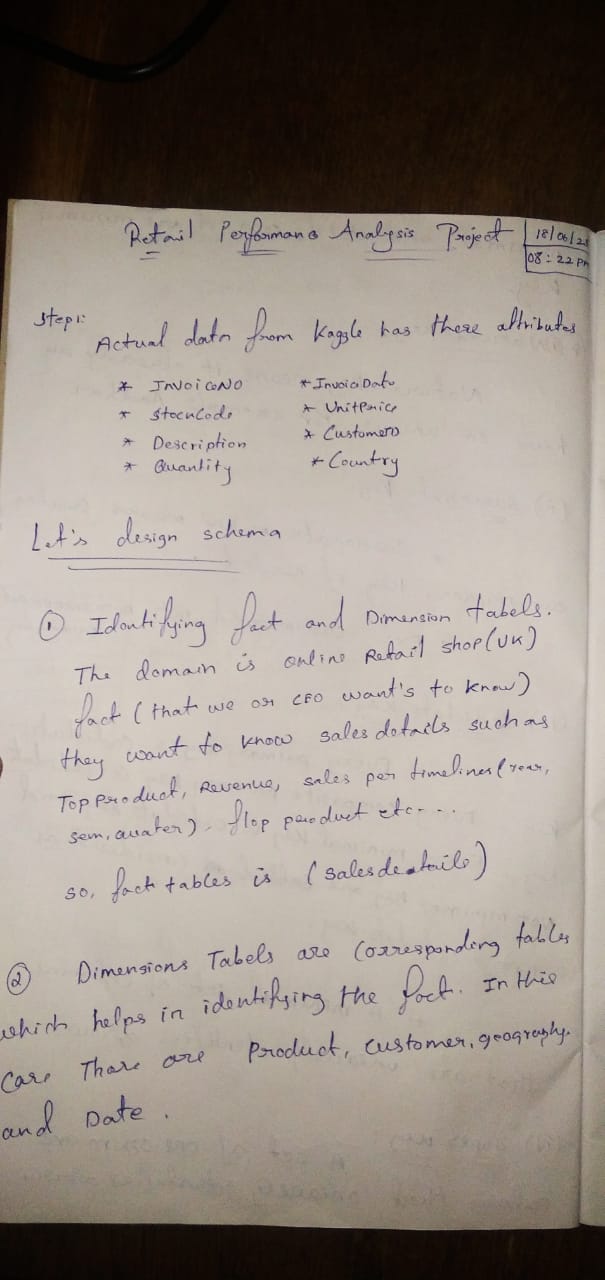 Retail Performance Analysis Project
18/06/2
08:22 PM
Step1:
Actual data from Kaggle has these attributes
* InvoiceNO * InvoiceDate
* StockCode * UnitPrice
* Description * CustomerID
* Quantity * Country
Let's design schema
① Identifying fact and Dimension tabels.
The domain is online Retail shop (UK)
fact (that we or CEO want's to know)
they want to know sales details such as
Top product, Revenue, sales per timelines (year,
sem, quater). flop product etc....
so, fact tables is (sales deatails)
② Dimensions Tabels are corresponding tables
which helps in identifying the fact. In this
case Thare are Product, customer, geography.
and Date.